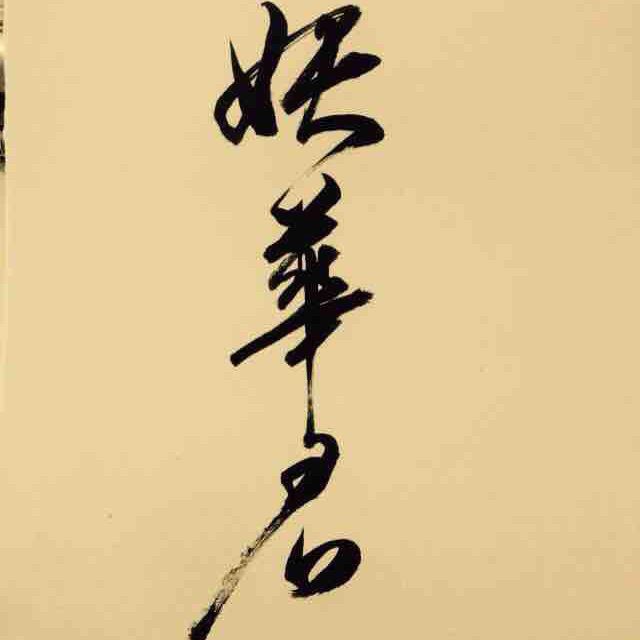 妖華君